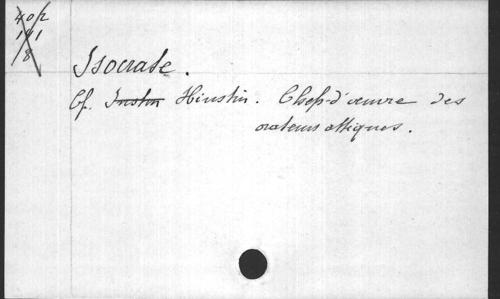 40/2
101
8
Isocrate.
Cf. Justin Hinstin. Chefs-d'œuvre des
orateurs attiques.